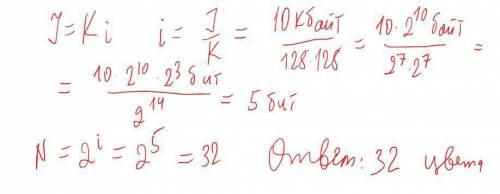 I = K i   i = I/K = 10 Кбайт/128·128 = 10·2^10 байт/2^7·2^7 =
= 10·2^10·2^3 бит/2^14 = 5 бит
N = 2^i = 2^5 = 32   Ответ: 32 цвета